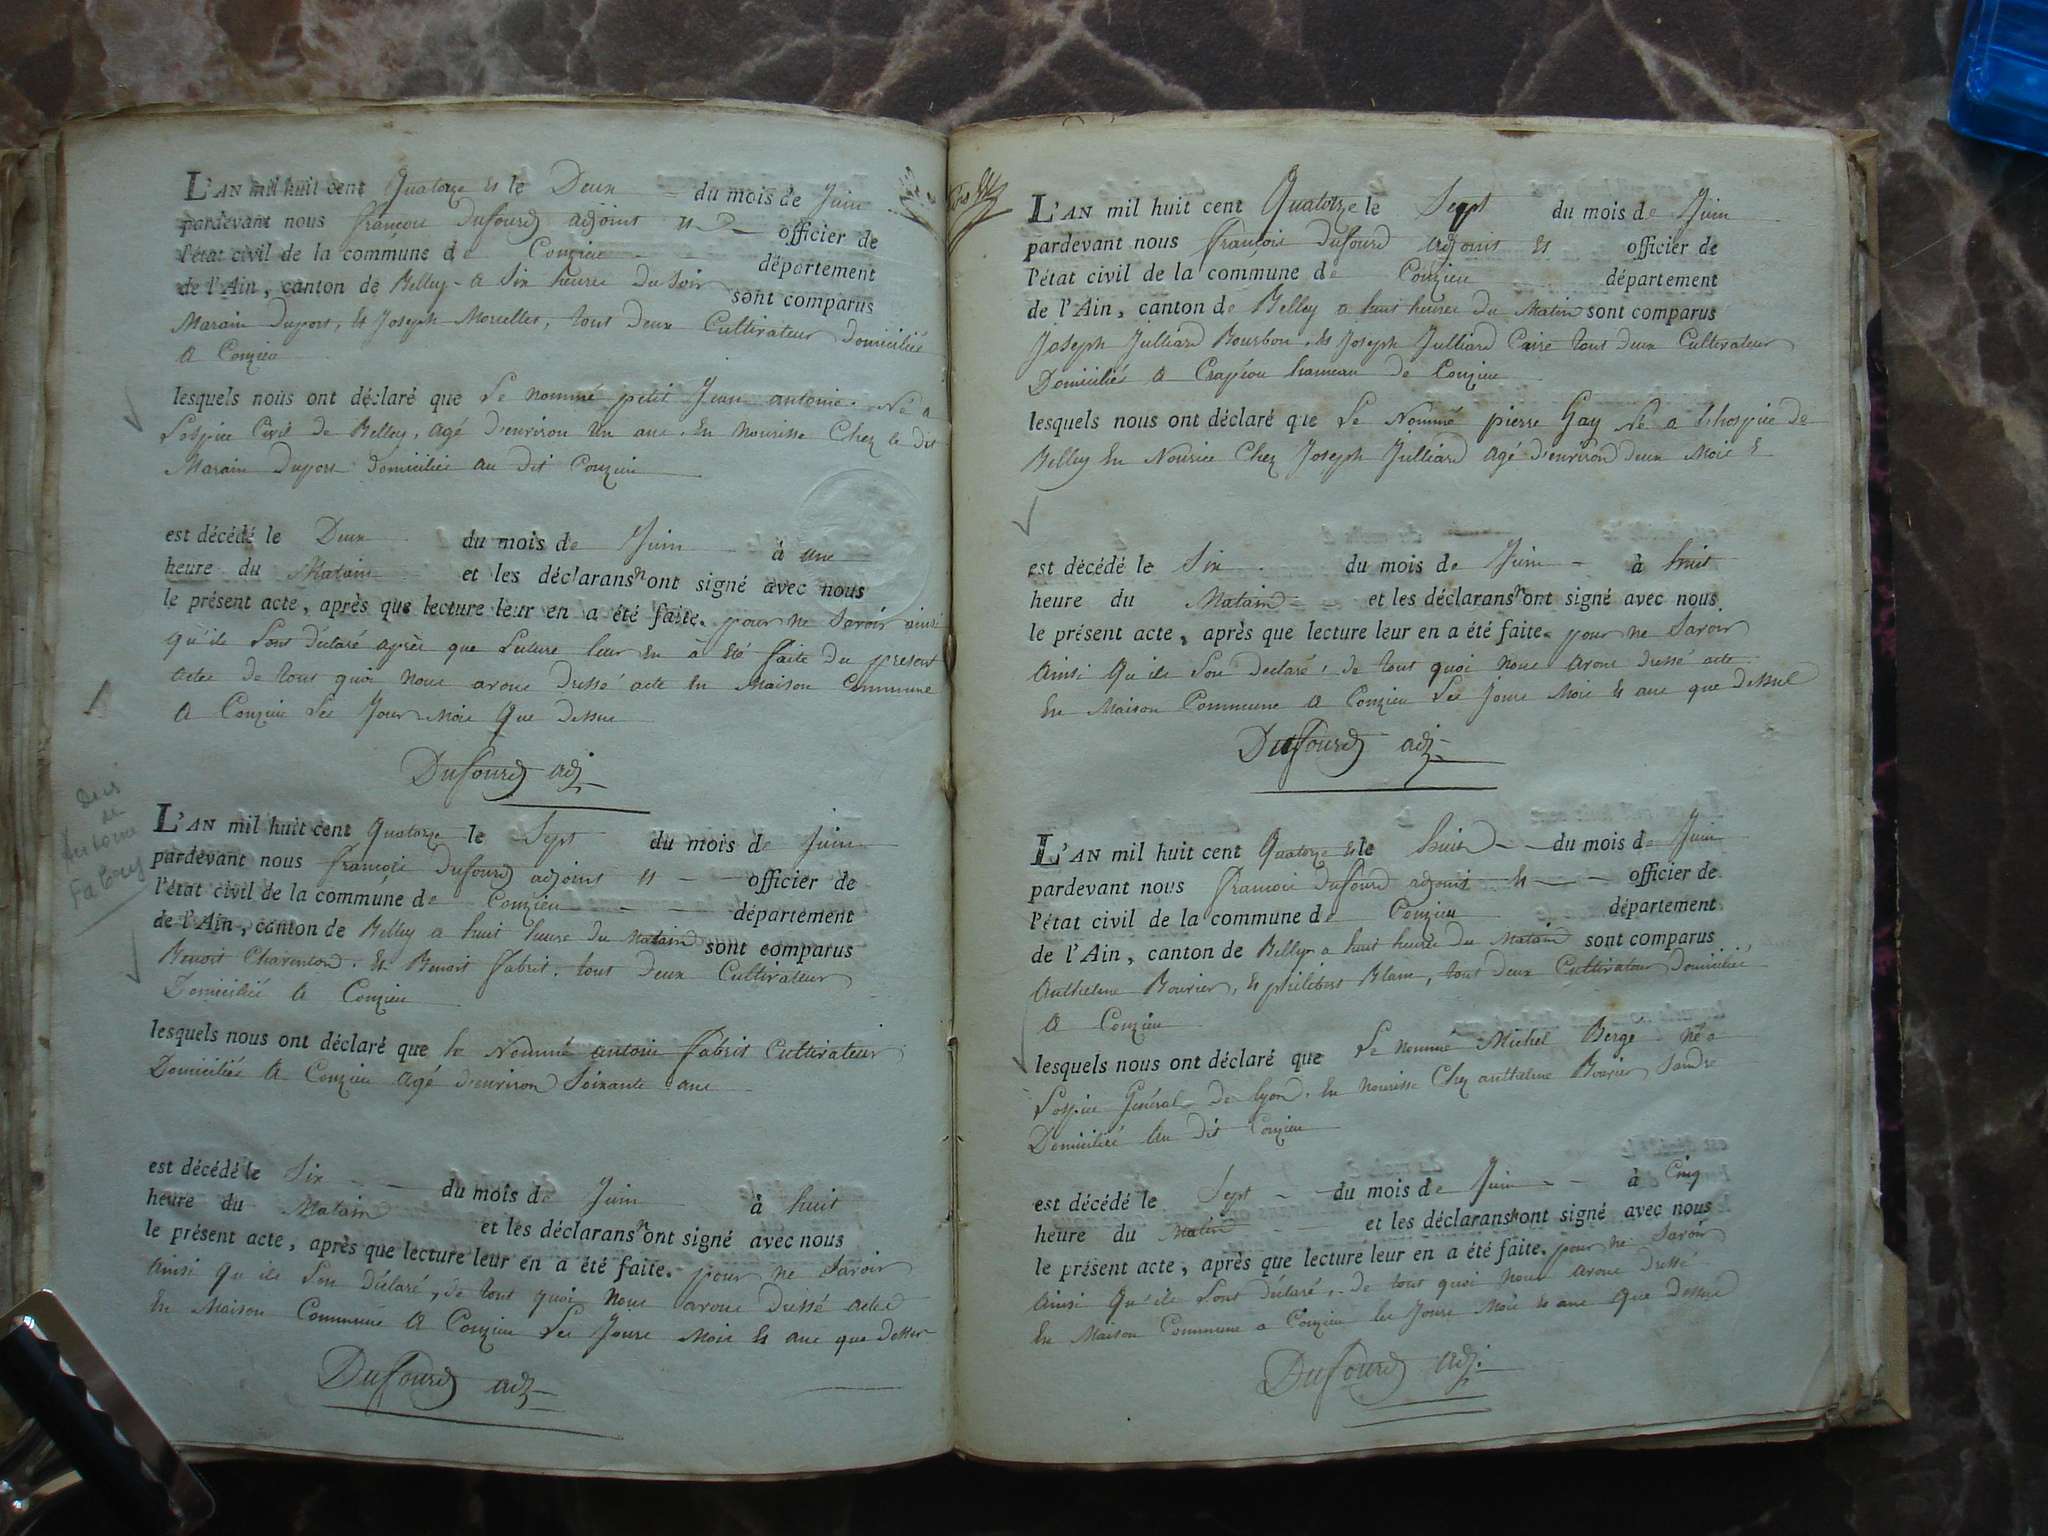 L'AN mil huit cent Quatorze Et le Deux du mois de Juin
pardevant nous francois Dufourd adjoint officier de
l'état civil de la commune de Conzieu département
de l'Ain, canton de Belley a Six heures du Soir sont comparus
Marain Duport, Et Joseph Morcellet, tout Deux Cultivateur Domicilié
A Conzieu
lesquels nous ont déclaré que Le nommé petit Jean antoine Né a
Lospice Civil de Belley, agé d'environ un ans, En Nourisse Chez le dit
Marain Duport Domicilié au dit Conzieu
est décédé le Deux du mois de Juin à une
heure du Matain et les déclarans n ont signé avec nous
le présent acte, après que lecture leur en a été faite. pour ne Savoir ainsi
qu'ils Lont Declaré après que Lecture leur En à Eté faite du present
acte de tout quoi nous avons Dressé acte En Maison Commune
A Conzieu Les Jour Mois Que Dessus
Dufourd adj
Deces
de
Antoine
Fabry
L'AN mil huit cent Quatorze le Sept du mois de Juin
pardevant nous francois Dufourd adjoint Et officier de
l'état civil de la commune de Conzieu département
de l'Ain, canton de Belley a huit heure du Matain sont comparus
Benoit Charenton. Et Benoit fabrit. tout Deux Cultivateur
Domicilié A Conzieu
lesquels nous ont déclaré que le Nommé antoine fabrit Cultivateur
Domiciliés A Conzieu agé d'environ Soixante ans
est décédé le Six du mois de Juin à huit
heure du Matain et les déclarans n ont signé avec nous
le présent acte, après que lecture leur en a été faite. pour ne Savoir
Ainsi Qu'ils Lon Déclaré, de tout quoi Nous avons Dressé acte
En Maison Commune A Conzieu Les Jours Mois Et ans que Dessus
Dufourd adj
L'AN mil huit cent Quatorze le Sept du mois de Juin
pardevant nous francois Dufourd adjoint Et officier de
l'état civil de la commune de Conzieu département
de l'Ain, canton de Belley a huit heures du Matin sont comparus
Joseph Julliard Bourbon, Et Joseph Julliard Caire tout deux Cultivateur
Domiciliés A Crapéou hameau de Conzieu
lesquels nous ont déclaré que Le Nommé pierre Gay Né a Lhospice de
Belley En Nourice Chez Joseph Julliard agé d'environ deux Mois
est décédé le Six du mois de Juin à huit
heure du Matain et les déclarans n ont signé avec nous
le présent acte, après que lecture leur en a été faite. pour ne Savoir
Ainsi Qu'ils Lon declaré, de tout quoi Nous avons dressé acte
En Maison Commune A Conzieu Les Jours Mois Et ans que Dessus
Dufourd adj
L'AN mil huit cent Quatorze Et le huit du mois de Juin
pardevant nous francois Dufourd adjoint Et officier de
l'état civil de la commune de Conzieu département
de l'Ain, canton de Belley a huit heures du Matain sont comparus
Anthelme Bourier, Et philibert Blanc, tout deux Cultivateur Domicilié
A Conzieu
lesquels nous ont déclaré que Le nommé Michel Berge né a
Lospice Général de Lyon. En Nourisse Chez anthelme Bourier
Domicilié Au dit Conzieu
est décédé le Sept du mois de Juin à Cinq
heure du Matin et les déclarans n ont signé avec nous
le présent acte, après que lecture leur en a été faite. pour ne Savoir
Ainsi Qu'ils Lont déclaré, de tout quoi Nous avons dressé
En Maison Commune a Conzieu les Jours Mois Et ans Que dessus
Dufourd adj.